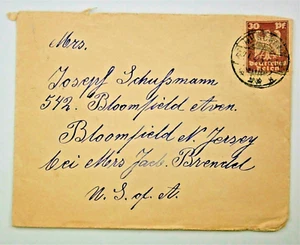 30 Pf
Deutsches
Reich
Mrs.
Josepf Schußmann
542. Bloomfield Aven.
Bloomfield N. Jersey
bei Mrs Jac. Brendel
U. S. of A.